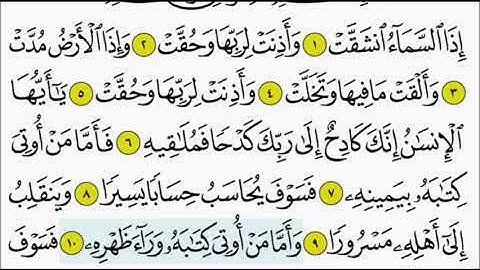 إِذَا ٱلسَّمَآءُ ٱنشَقَّتۡ ١ وَأَذِنَتۡ لِرَبِّهَا وَحُقَّتۡ ٢ وَإِذَا ٱلۡأَرۡضُ مُدَّتۡ
٣ وَأَلۡقَتۡ مَا فِيهَا وَتَخَلَّتۡ ٤ وَأَذِنَتۡ لِرَبِّهَا وَحُقَّتۡ ٥ يَٰٓأَيُّهَا
ٱلۡإِنسَٰنُ إِنَّكَ كَادِحٌ إِلَىٰ رَبِّكَ كَدۡحٗا فَمُلَٰقِيهِ ٦ فَأَمَّا مَنۡ أُوتِيَ
كِتَٰبَهُۥ بِيَمِينِهِۦ ٧ فَسَوۡفَ يُحَاسَبُ حِسَابٗا يَسِيرٗا ٨ وَيَنقَلِبُ
إِلَىٰٓ أَهۡلِهِۦ مَسۡرُورٗا ٩ وَأَمَّا مَنۡ أُوتِيَ كِتَٰبَهُۥ وَرَآءَ ظَهۡرِهِۦ ١٠ فَسَوۡفَ